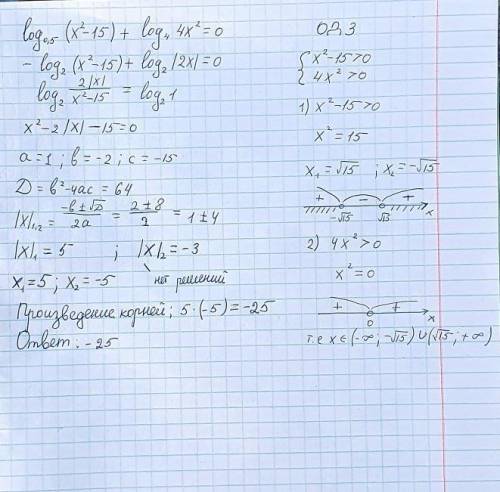 log₀,₅ (x²-15) + log₄ 4x² = 0
- log₂ (x²-15) + log₂ |2x| = 0
log₂ 2|x|/(x²-15) = log₂ 1
x² - 2|x| - 15 = 0
a = 1 ; b = -2 ; c = -15
D = b² - 4ac = 64
|x|₁,₂ = (-b ± √D)/2a = (2 ± 8)/2 = 1 ± 4
|x|₁ = 5 ; |x|₂ = -3
x₁ = 5 ; x₂ = -5 нет решений
Произведение корней: 5 · (-5) = -25
Ответ: -25
ОДЗ
{ x² - 15 > 0
4x² > 0
1) x² - 15 > 0
x² = 15
x₁ = √15 ; x₂ = -√15
+ - +
-√15 √15 x
2) 4x² > 0
x² = 0
+ +
0 x
т.е x ∈ (-∞; -√15) ∪ (√15; +∞)